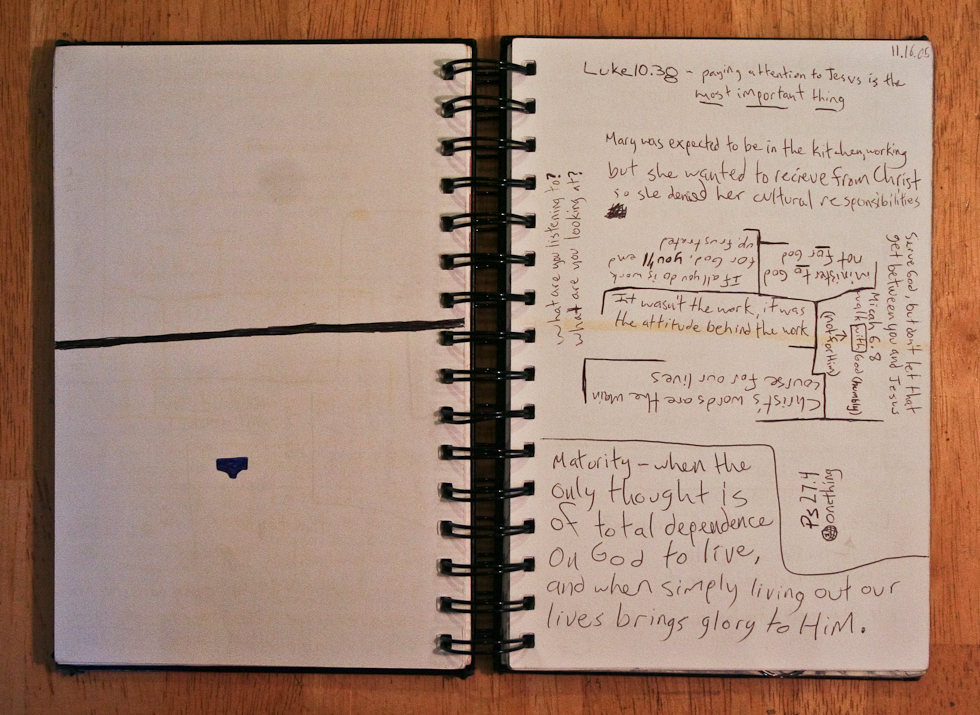 11.16.05
Luke 10.38 - paying attention to Jesus is the
most important thing
Mary was expected to be in the kitchen, working
but she wanted to recieve from Christ
so she denied her cultural responsibilities
what are you listening to?
what are you looking at?
If all you do is work
for God, you'll end
up frustrated
minister to God
not for God
Serve God, but don't let that
get between you and Jesus
It wasn't the work, it was
the attitude behind the work
Micah 6.8
walk with God (humbly)
(not for Him)
Christ's words are the main
course for our lives
Ps 27.4
one thing
Maturity - when the
only thought is
of total dependence
on God to live,
and when simply living out our
lives brings glory to HiM.